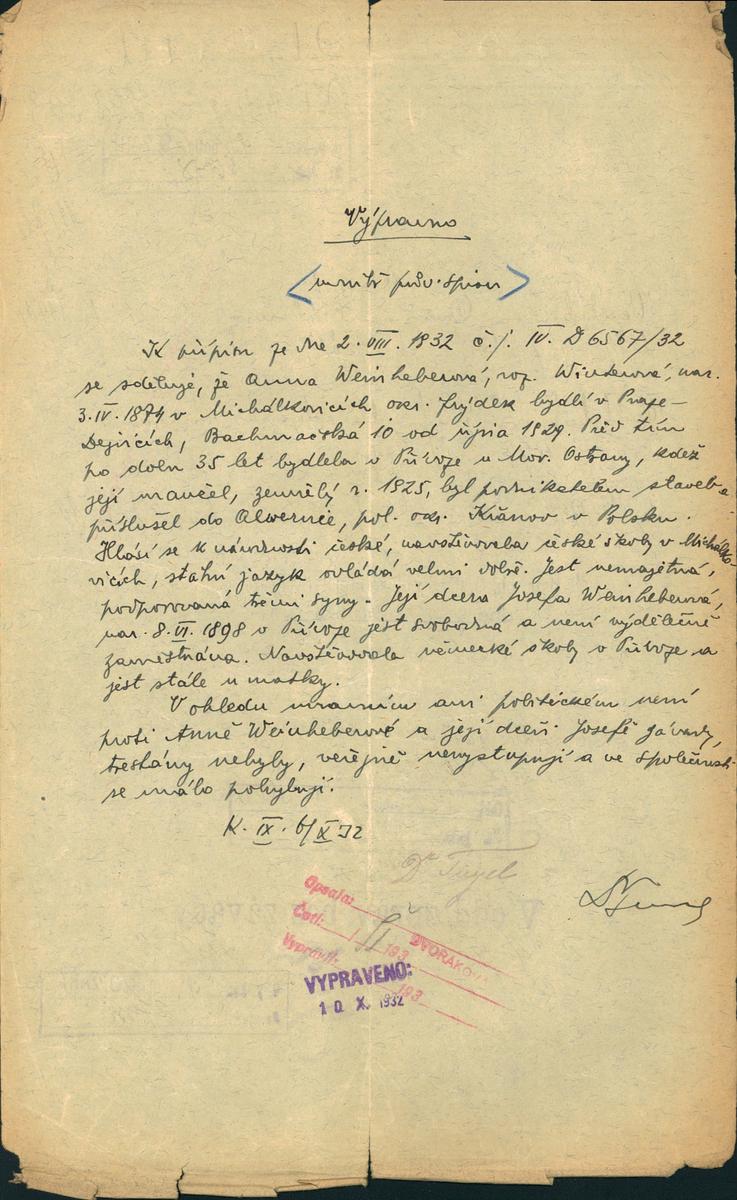 Výpravno
<vrátit pův. spisu>
K přípisu ze dne 2. VIII. 1932 č./j. IV. D 6567/32
se sděluje, že Anna Weinheberová, roz. Winterová, nar.
3. IV. 1874 v Michálkovicích okr. Frýdek bydlí v Praze-
Dejvicích, Bachmačská 10 od října 1929. Před tím
po dobu 35 let bydlela v Přívoze u Mor. Ostravy, kdež
její manžel, zemřelý r. 1925, byl podnikatelem staveb a
příslušel do Alwernie, pol. okr. Křanov v Polsku.
Hlásí se k národnosti české, navštěvovala české školy v Michálko-
vicích, státní jazyk ovládá velmi dobře. Jest nemajetná,
podporovaná třemi syny. Její dcera Josefa Weinheberová,
nar. 8. VI. 1898 v Přívoze jest svobodná a není výdělečně
zaměstnána. Navštěvovala německé školy v Přívoze a
jest stále u matky.
V ohledu mravním ani politickém není
proti Anně Weinheberové a její dceři Josefě závady,
trestány nebyly, veřejně nevystupují a ve společnosti
se málo pohybují.
K. IX. 6/X 32
Dr Tigel
Opsala: DVORAKOVÁ
Četl: 193
Vypravil: 193
VYPRAVENO:
10 X. 1932